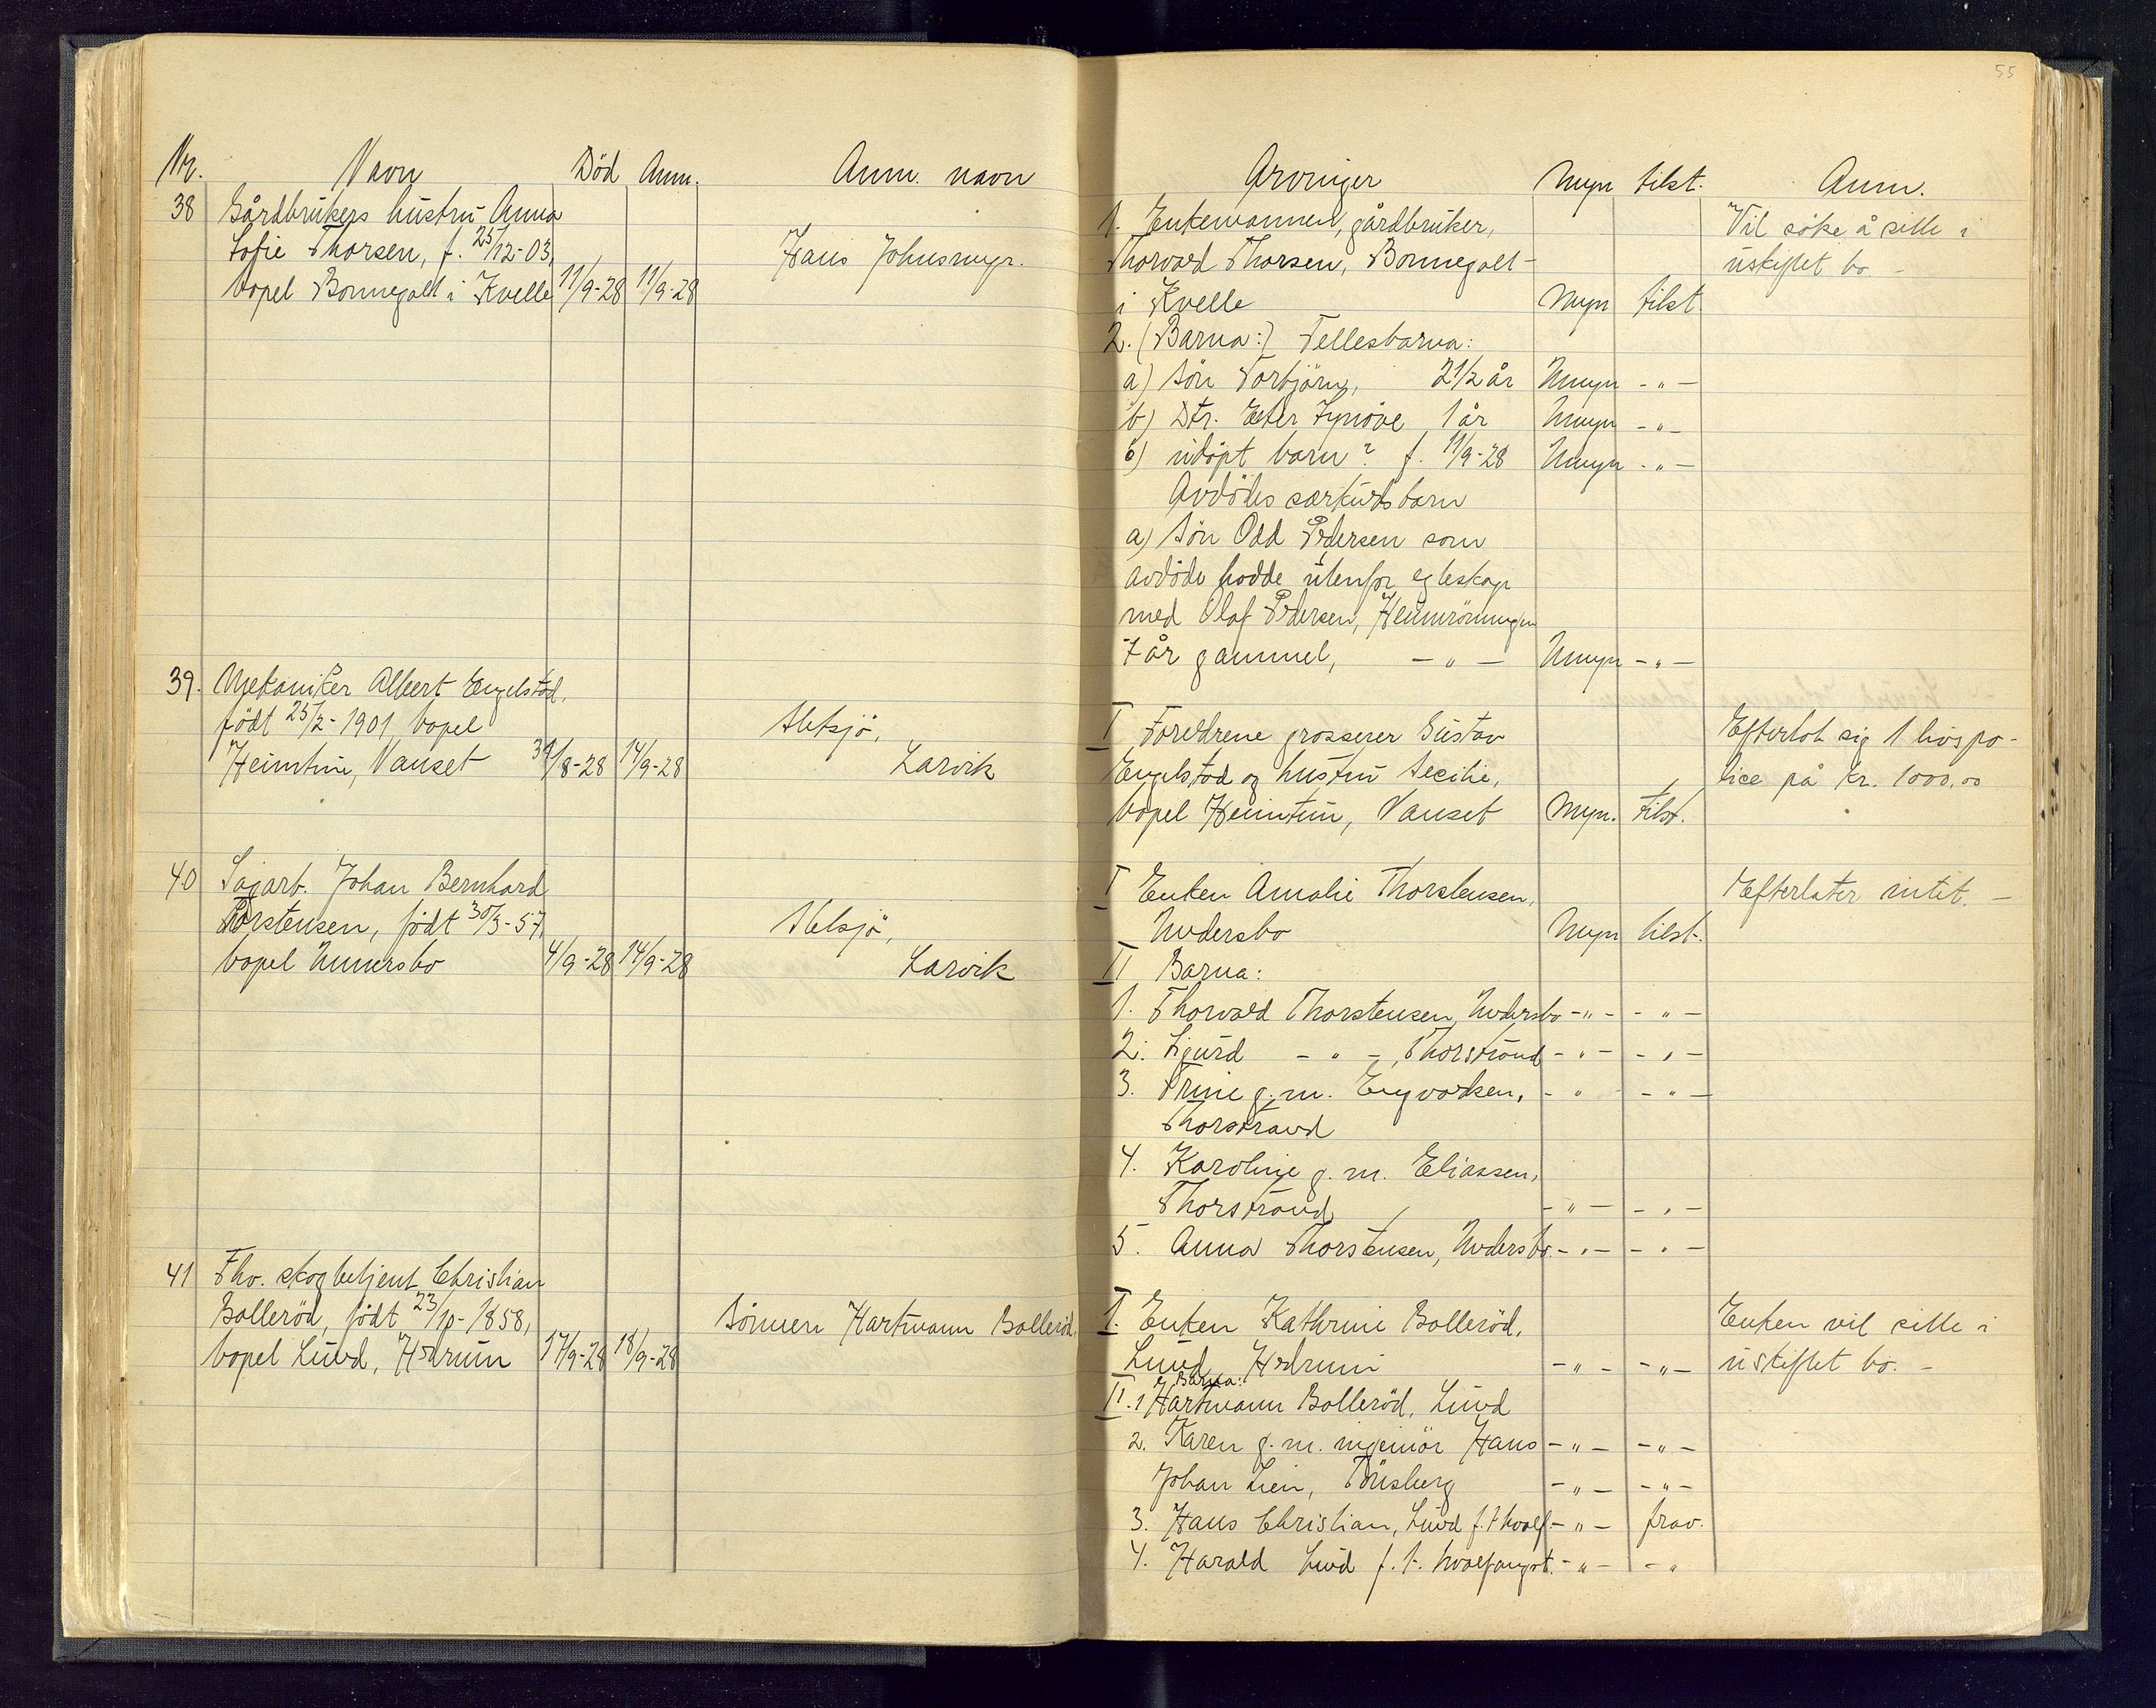 55
Nr. Navn Död Anm. Anm. navn
38 Gårdbrukers hustru Anna
Sofie Thorsen, f. 25/12-03,
bopel Bonnegolt i Kvelle 11/9-28 11/9-28 Hans Johnsmyr.
39. Mekaniker Albert Engelstad,
född 25/2-1901, bopel
Heimtun, Nanset 31/8-28 14/9-28 Larvik
40 Sagarb. Johan Bernhard
Thorstensen, född 30/3-57,
bopel Unnersbo 4/9-28 14/9-28 Larvik
41 Fhv. skogbetjent Christian
Bolleröd, född 23/10-1858,
bopel Lund, Hedrum 17/9-28 18/9-28 Sönnen Hartmann Bolleröd
Arvinger Myn tilst. Anm.
1. Enkemannen, gårdbruker, Vil söke å sitte i
Thorvald Thorsen, Bonnegolt uskiftet bo -
i Kvelle Myn tilst
2. (Barna:) Fellesbarna:
a) Sön Torbjörn, 2 1/2 år Umyn -"-
b) Dtr. Ester Synöve 1 år Umyn -"-
c) udöpt barn? f. 11/9-28 Umyn -"-
Avdödes særkulsbarn
a) Sön Odd Pedersen som
avdöde hadde utenfor egteskap
med Olaf Pedersen,
7 år gammel, -"- Umyn -"-
I Foreldrene grosserer Gustav Efterlot sig 1 livspo-
Engelstad og hustru Secilie, lice på kr. 1000,00
bopel Heimtun, Nanset Myn. tilst.
I Enken Amalie Thorstensen, Efterlater intet. -
Undersbo Myn tilst.
II Barna:
1. Thorvald Thorstensen, Undersbo -"- -"-
2. Sigurd -"-, Thorstrand -"- -"-
3. Trine g.m. Engvoldsen, -"- -"-
Thorstrand
4. Karoline g.m. Eliassen,
Thorstrand, -"- -"-
5. Anna Thorstensen, Undersbo. -"- -"-
I. Enken Kathrine Bolleröd, Enken vil sitte i
Lund Hedrum -"- -"- uskiftet bo. -
Barna:
II. 1 Hartmann Bolleröd, Lund
2. Karen g.m. ingeniör Hans -"- -"-
Johan Lien, Tönsberg -"- -"-
3. Hans Christian, Lund f.t. hvalf. -"- frav.
4. Harald Lund f.t. hvalfangst. -"- -"